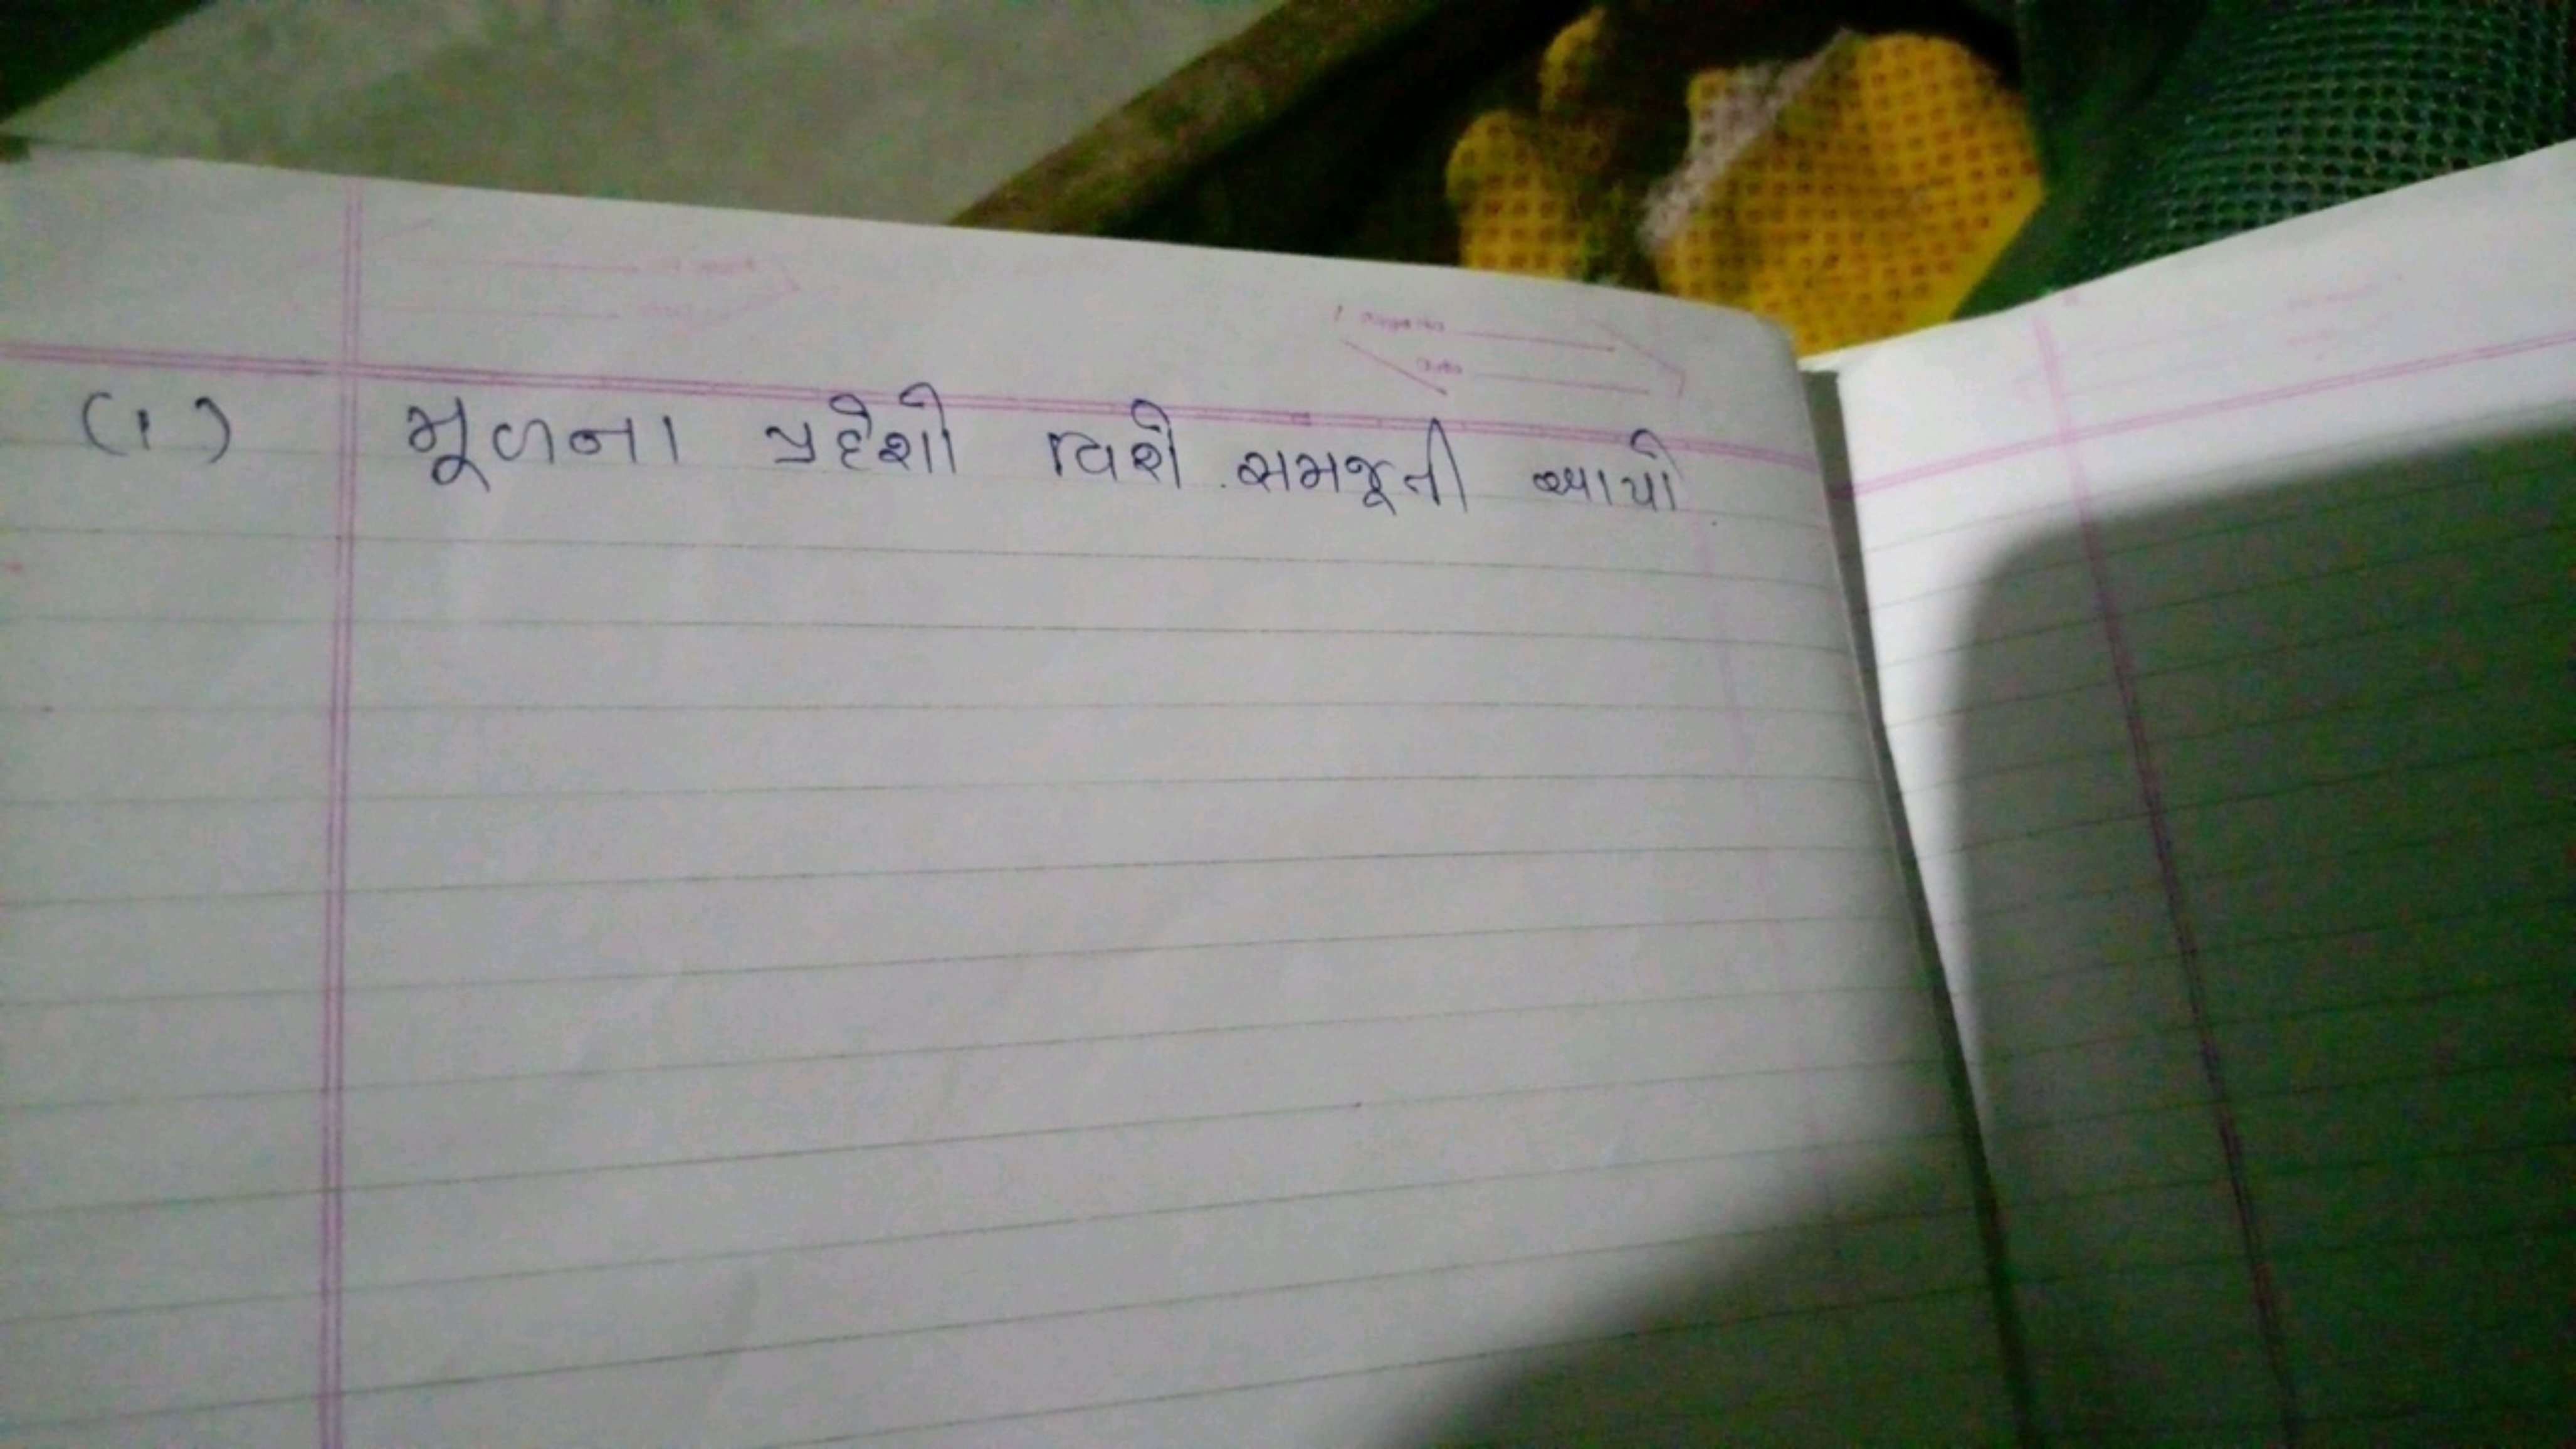 (1) મૂળના પ્રદેશો વિશે સમજૂતી આપો.